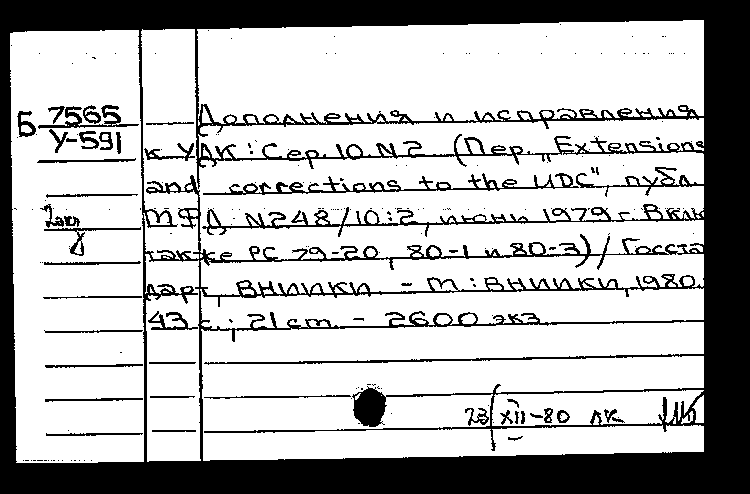 Б 7565
У-591
Дополнения и исправления
к УДК: Сер. 10. N 2 (Пер. „Extensions
and corrections to the UDC", публ.
МФД N248/10:2, июнь 1979 г. Вклю
также РС 79-20, 80-1 и 80-3) / Госста
дарт, ВНИИКИ. - М.: ВНИИКИ, 1980.
43 с.; 21 cm. - 2600 экз
2 экз
23/XII-80 ЛК